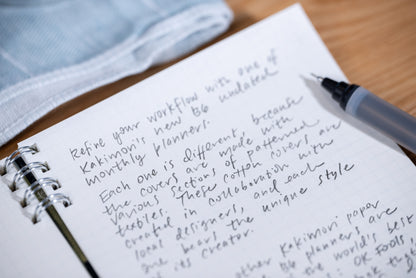 Refine your workflow with one of
Kakimori's new B6 undated
monthly planners.
Each one is different, because
the covers are made with
various sections of patterned
textiles. These cotton covers are
created in collaboration with
local designers, and each
one bears the unique style
its creator.
other Kakimori paper
B6 planners are
world's best
OK Fools